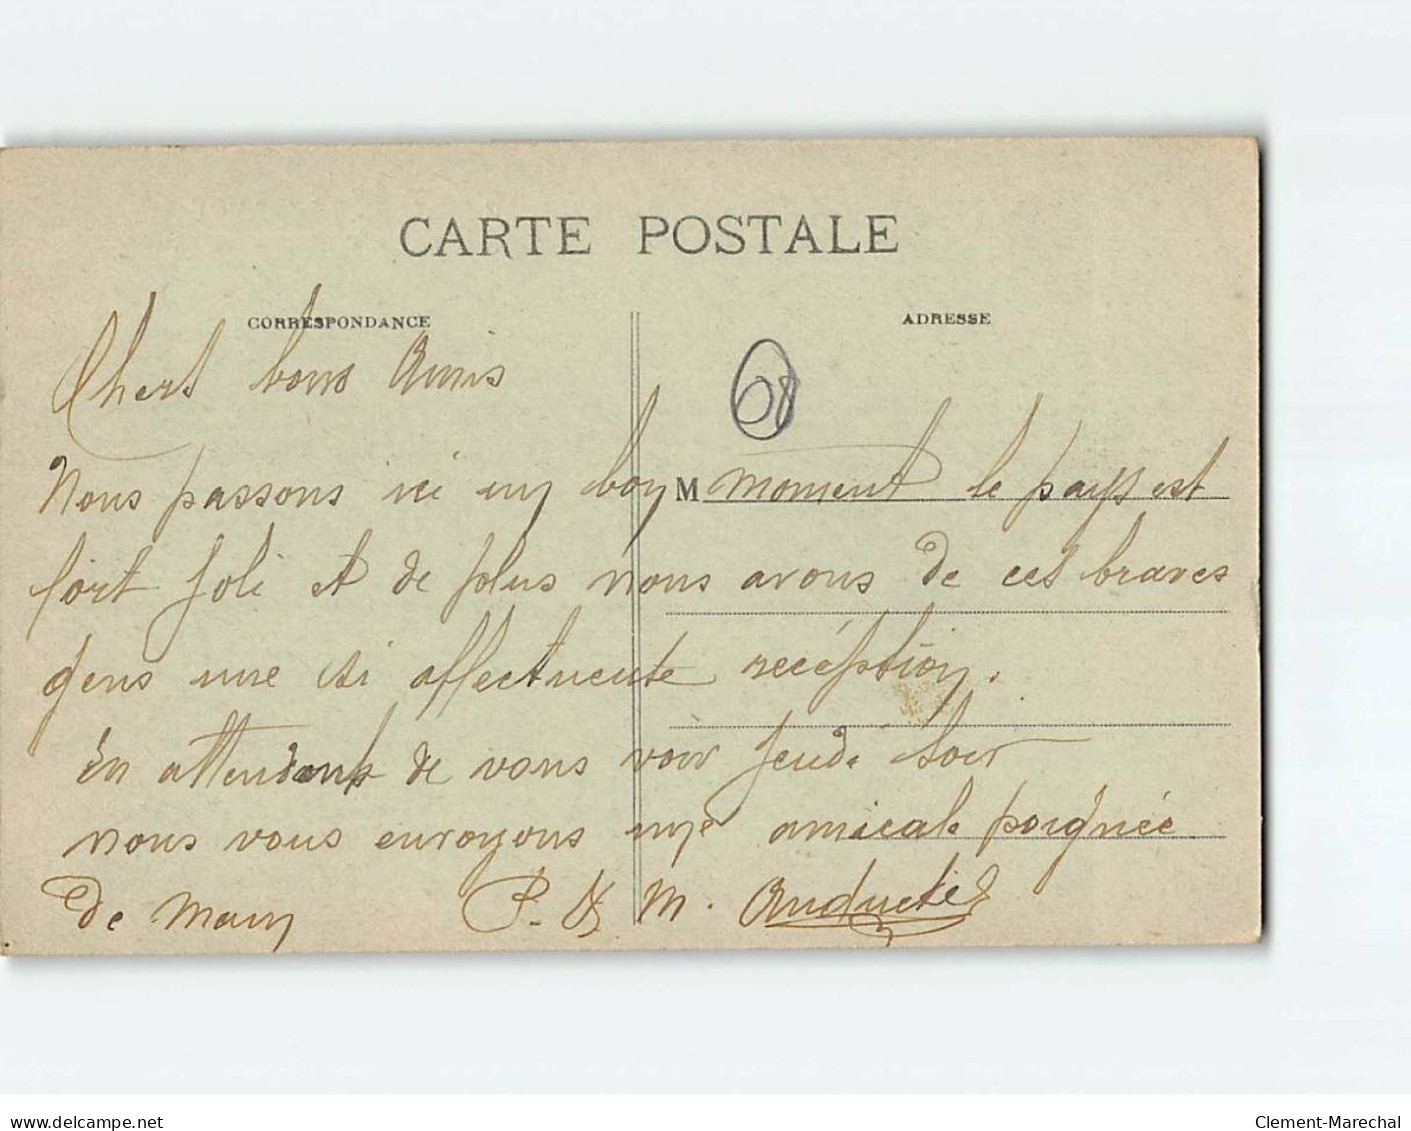 CARTE POSTALE
CORRESPONDANCE
ADRESSE
08
Chers bons Amis
Nous passons ici un bon M moment le pays est
fort joli et de plus nous avons de ces braves
gens une si affectueuse réception.
En attendant de vous voir Jeudi soir
nous vous envoyons une amicale poignée
de main P. & M.
delcampe.net
Clement-Marechal